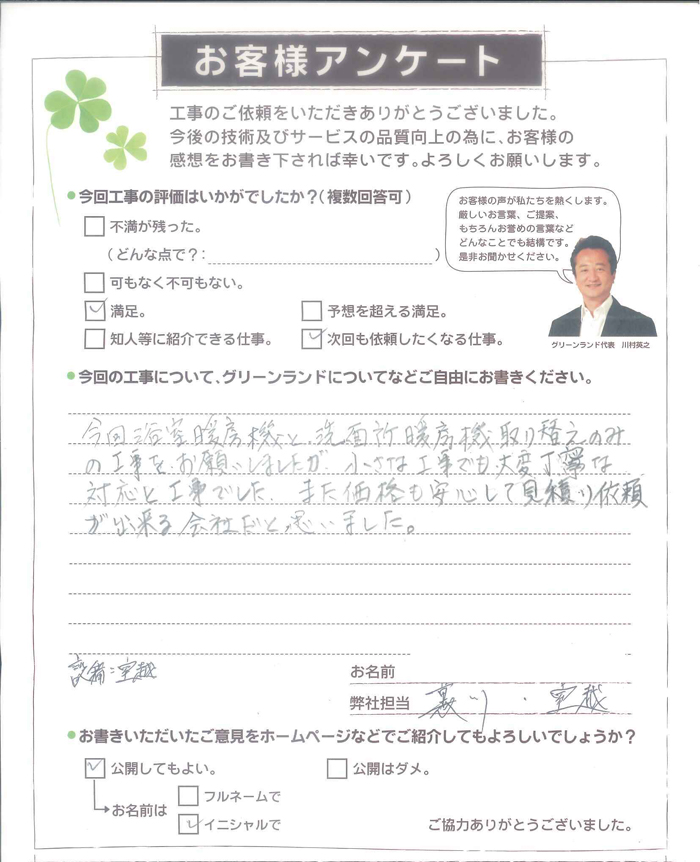 お客様アンケート
工事のご依頼をいただきありがとうございました。
今後の技術及びサービスの品質向上の為に、お客様の
感想をお書き下されば幸いです。よろしくお願いします。
今回工事の評価はいかがでしたか？(複数回答可)
お客様の声が私たちを熱くします。
厳しいお言葉、ご提案、
もちろんお誉めの言葉など
どんなことでも結構です。
是非お聞かせください。
不満が残った。
(どんな点で？: )
可もなく不可もない。
満足。 予想を超える満足。
知人等に紹介できる仕事。 次回も依頼したくなる仕事。
グリーンランド代表 川村英之
今回の工事について、グリーンランドについてなどご自由にお書きください。
今回浴室暖房機と、洗面所暖房機取り替えのみ
の工事をお願いしましたが、小さな工事でも大変丁寧な
対応と工事でした。また価格も安心して見積り依頼
が出来る会社だと思いました。
設備:室越
お名前
弊社担当 裏川・室越
お書きいただいたご意見をホームページなどでご紹介してもよろしいでしょうか？
公開してもよい。 公開はダメ。
お名前は フルネームで
イニシャルで
ご協力ありがとうございました。